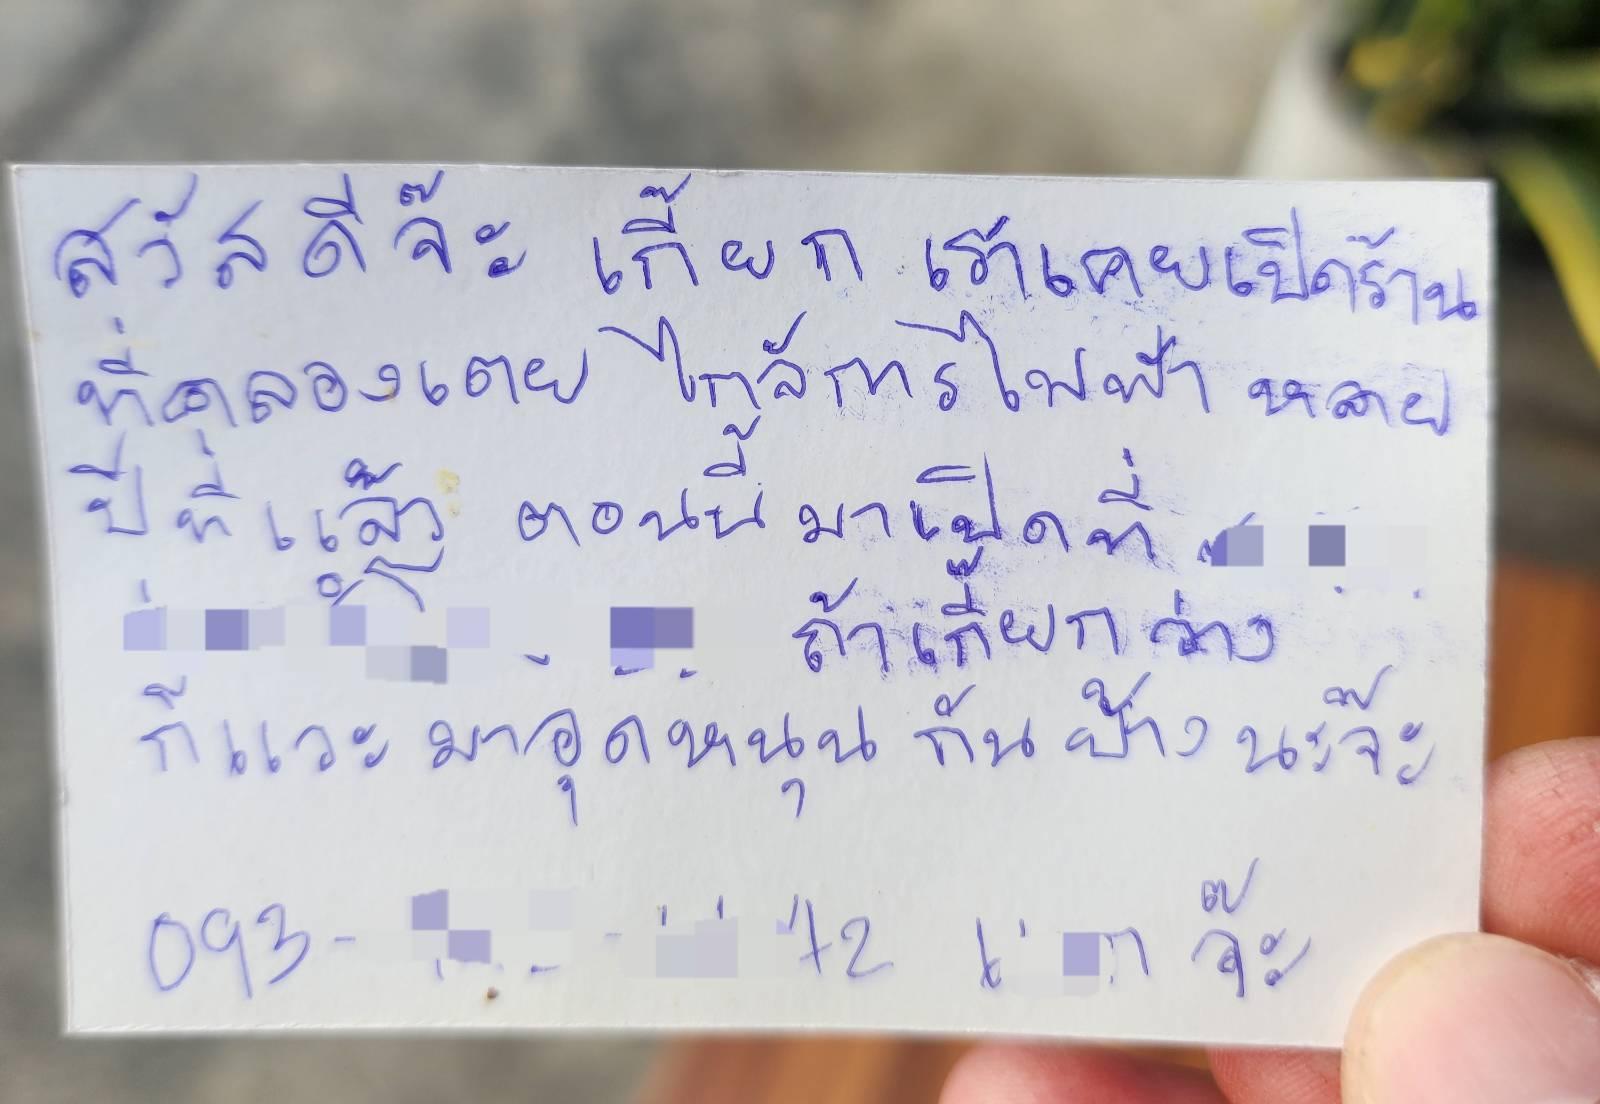 สวัสดีจ๊ะ เกี๊ยก เราเคยเปิดร้าน
ที่คลองเตย ใกล้การไฟฟ้า หลาย
ปีที่แล้ว ตอนนี้มาเปิดที่
ถ้าเกี๊ยกว่าง
ก็แวะมาอุดหนุนกันบ้างนะจ๊ะ
093- 72 จ๊ะ